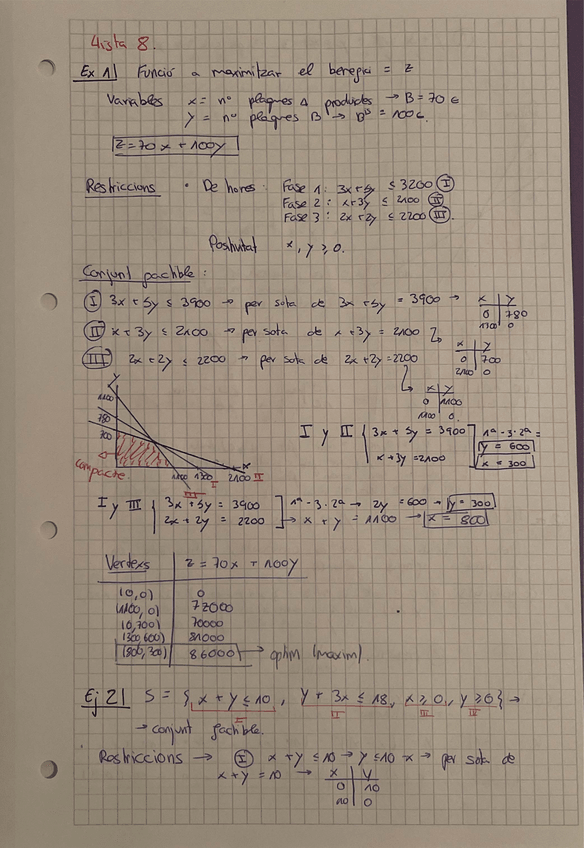 Llista 8.
Ex 1| Funció a maximitzar el benefici = z
Variables x = nº plaques A produïdes → B = 70 €
y = nº plaques B → Bᴮ = 100 €.
z = 70x + 100y
Restriccions • De hores: Fase 1: 3x + 5y ≤ 3200 (I)
Fase 2: x + 3y ≤ 2100 (II)
Fase 3: 2x + 2y ≤ 2200 (III).
x, y ≥ 0.
Conjunt factible:
(I) 3x + 5y ≤ 3900 → per sota de 3x + 5y = 3900 →
x y
0 780
1300 0
(II) x + 3y ≤ 2100 → per sota de x + 3y = 2100
x y
0 700
2100 0
(III) 2x + 2y ≤ 2200 → per sota de 2x + 2y = 2200
x y
0 1100
1100 0.
y
1100
780
700
x
1100 1300 2100 II
III I
compacte.
I y II { 3x + 5y = 3900 ] 1ª - 3·2ª =
y = 600
x + 3y = 2100 x = 300
I y III { 3x + 5y = 3900 ] 1ª - 3·2ª → 2y = 600 → y = 300
2x + 2y = 2200 → x + y = 1100 → x = 800
Vertexs | z = 70x + 100y
(0,0) 0
(1100,0) 77000
(0,700) 70000
(300,600) 81000
(800,300) 86000 → optim (maxim).
Ej 2| S = { x + y ≤ 10, y + 3x ≤ 18, x ≥ 0, y ≥ 0 } →
I II III IV
→ conjunt factible.
Restriccions → (I) x + y ≤ 10 → y ≤ 10 - x → per sota de
x + y = 10 →
x y
0 10
10 0